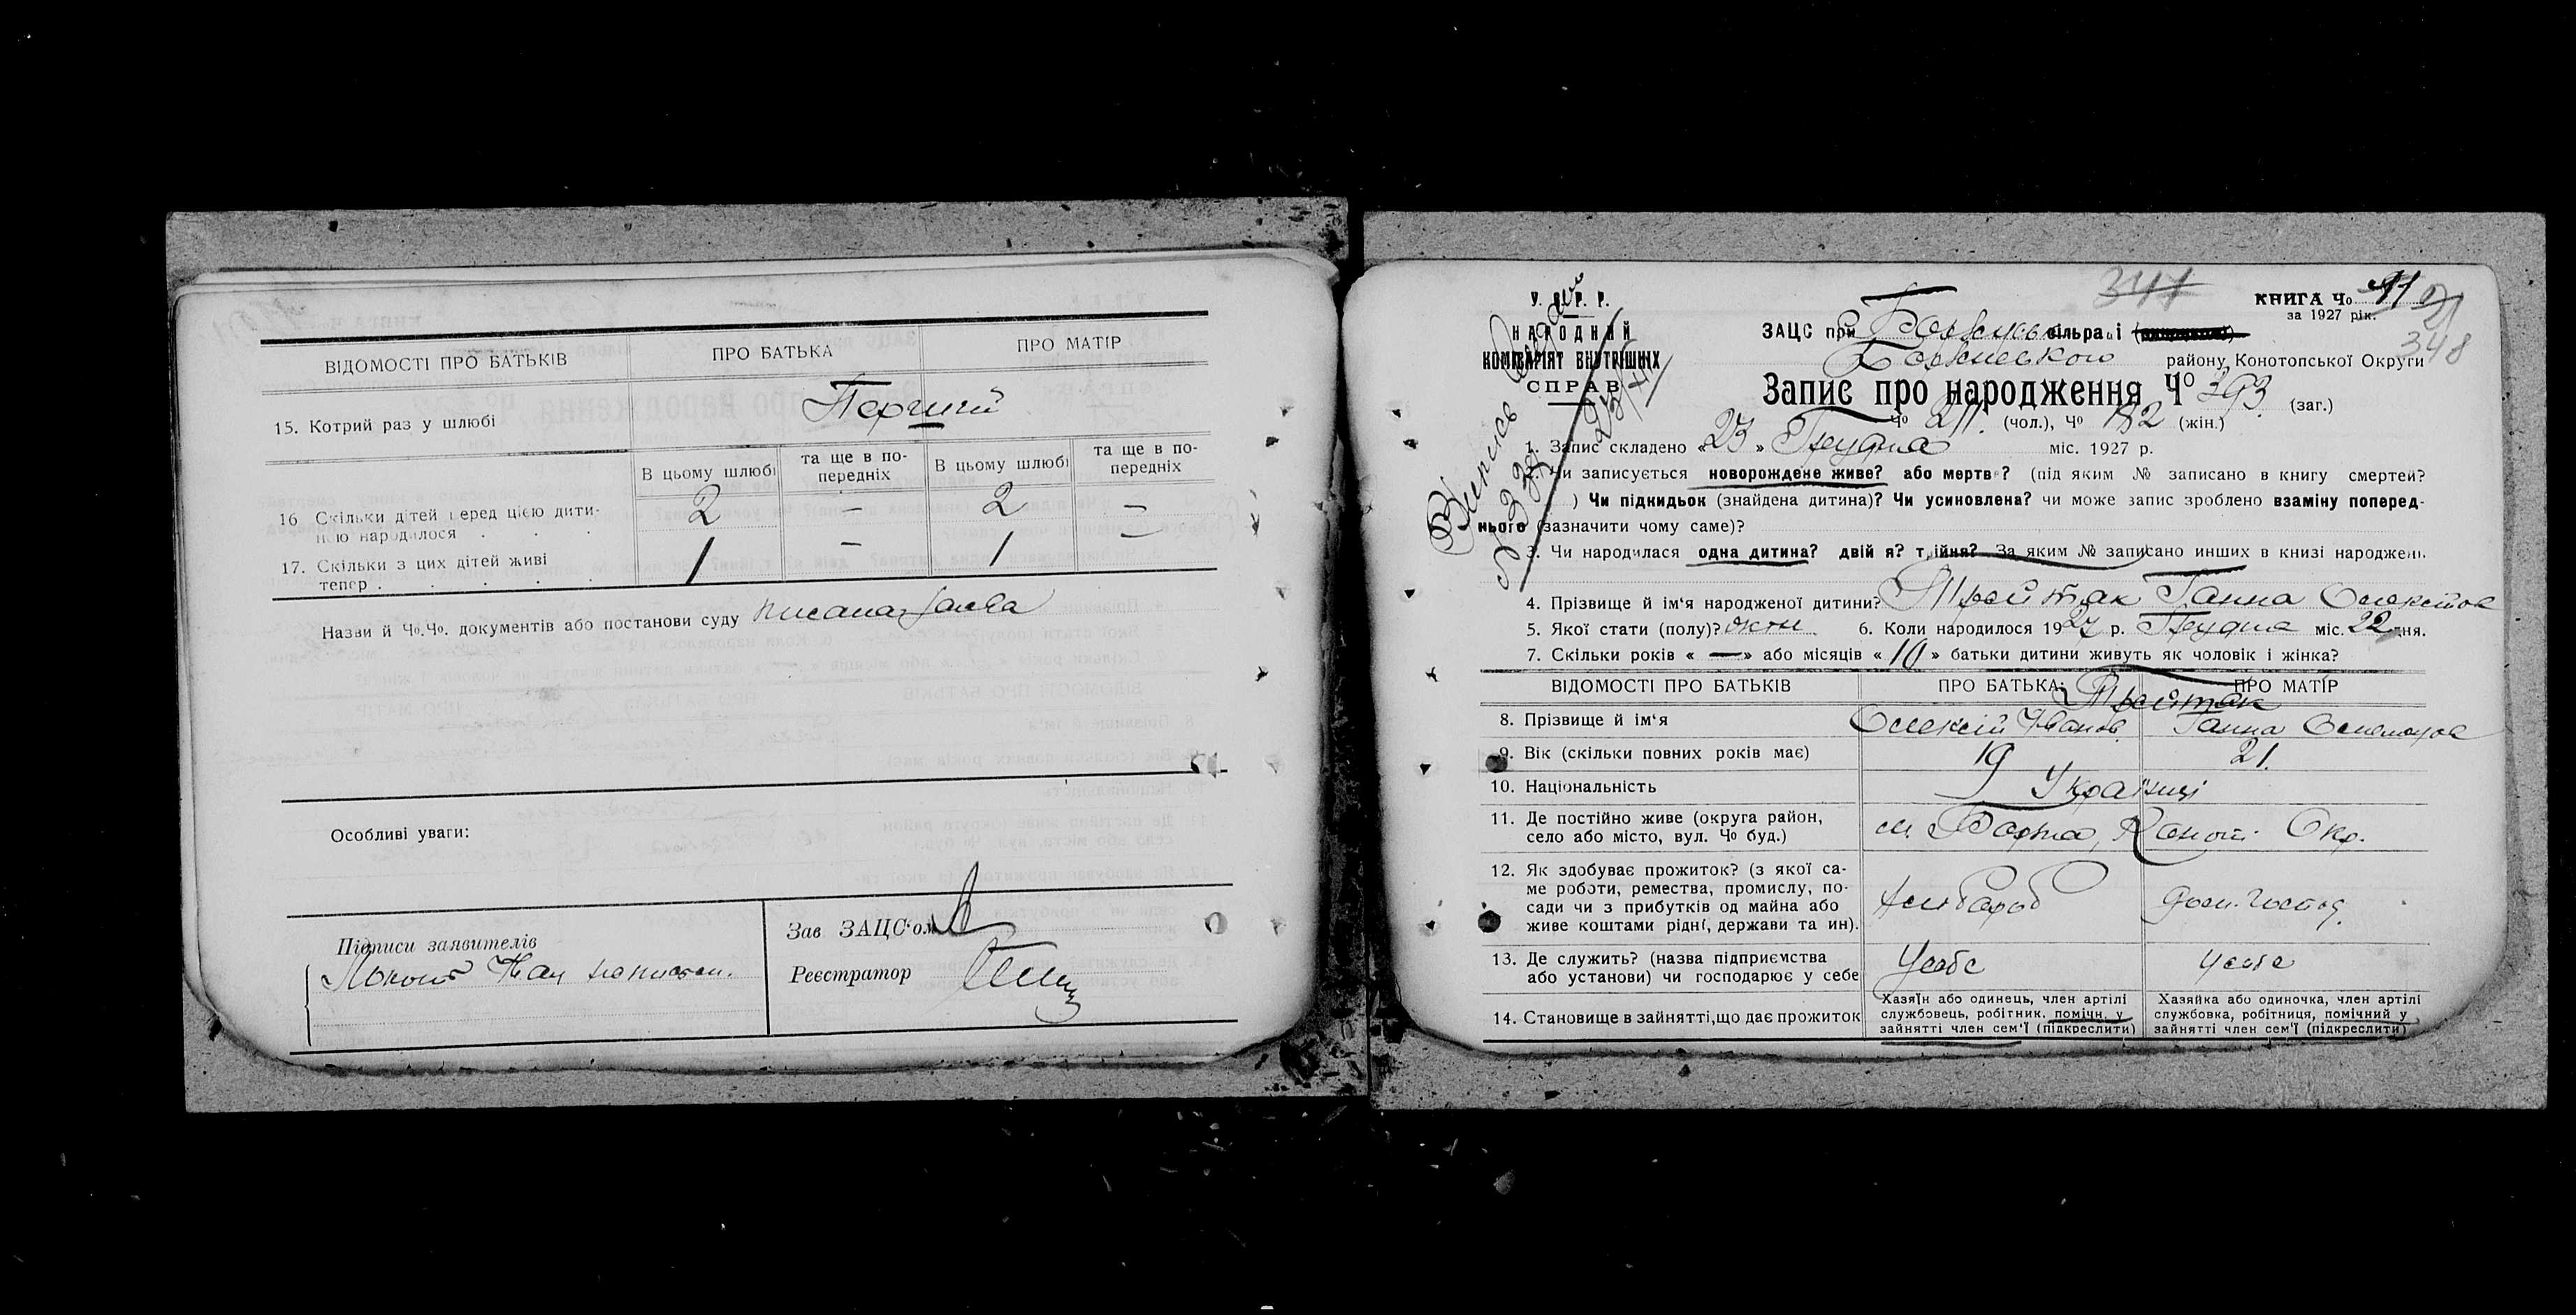 ВІДОМОСТІ ПРО БАТЬКІВ
ПРО БАТЬКА
ПРО МАТІР
15. Котрий раз у шлюбі
Перший
В цьому шлюбі
та ще в попередніх
В цьому шлюбі
та ще в попередніх
16 Скільки дітей перед цією дити-
ною народилося . . .
2 — 2 —
17. Скільки з цих дітей живі
тепер . . . . .
1 — 1 —
Назви й Ч°.Ч°. документів або постанови суду
Особливі уваги:
Підписи заявителів
Зав ЗАЦС'ом
Реєстратор
У. С. Р. Р.
НАРОДНИЙ
КОМІСАРІЯТ ВНУТРІШНІХ
СПРАВ
347
КНИГА Ч° 11
за 1927 рік.
348
ЗАЦС при сільраді
району Конотопської Округи
Запис про народження Ч° 393 (заг.)
Ч° 211 (чол.), Ч° 182 (жін.)
1. Запис складено « 23 » Грудня міс. 1927 р.
2. Чи записується новорождене живе? або мертве? (під яким № записано в книгу смертей?
) Чи підкидьок (знайдена дитина)? Чи усиновлена? чи може запис зроблено взаміну поперед-
нього (зазначити чому саме)?
3. Чи народилася одна дитина? двійня? трійня? За яким № записано инших в книзі народжень
4. Прізвище й ім'я народженої дитини? Трейтяк Ганна Олексіїов
5. Якої стати (полу)? жін 6. Коли народилося 1927 р. Грудня міс. 22 дня.
7. Скільки років « — » або місяців « 10 » батьки дитини живуть як чоловік і жінка?
ВІДОМОСТІ ПРО БАТЬКІВ
ПРО БАТЬКА:
ПРО МАТІР
Трейтяк
8. Прізвище й ім'я
Олексій Іванов
Ганна
9. Вік (скільки повних років має)
19
21.
10. Національність
Українці
11. Де постійно живе (округа район,
село або місто, вул. Ч° буд.)
м. Борзна, Коноп. Окр.
12. Як здобуває прожиток? (з якої са-
ме роботи, ремества, промислу, по-
сади чи з прибутків од майна або
живе коштами рідні, держави та ин).
хлібороб
дом. господ.
13. Де служить? (назва підприємства
або установи) чи господарює у себе
У себе
у себе
14. Становище в зайнятті, що дає прожиток
Хазяїн або одинець, член артілі
службовець, робітник, помічн. у
зайнятті член сем'ї (підкреслити)
Хазяйка або одиночка, член артілі
службовка, робітниця, помічний у
зайнятті член сем'ї (підкреслити)